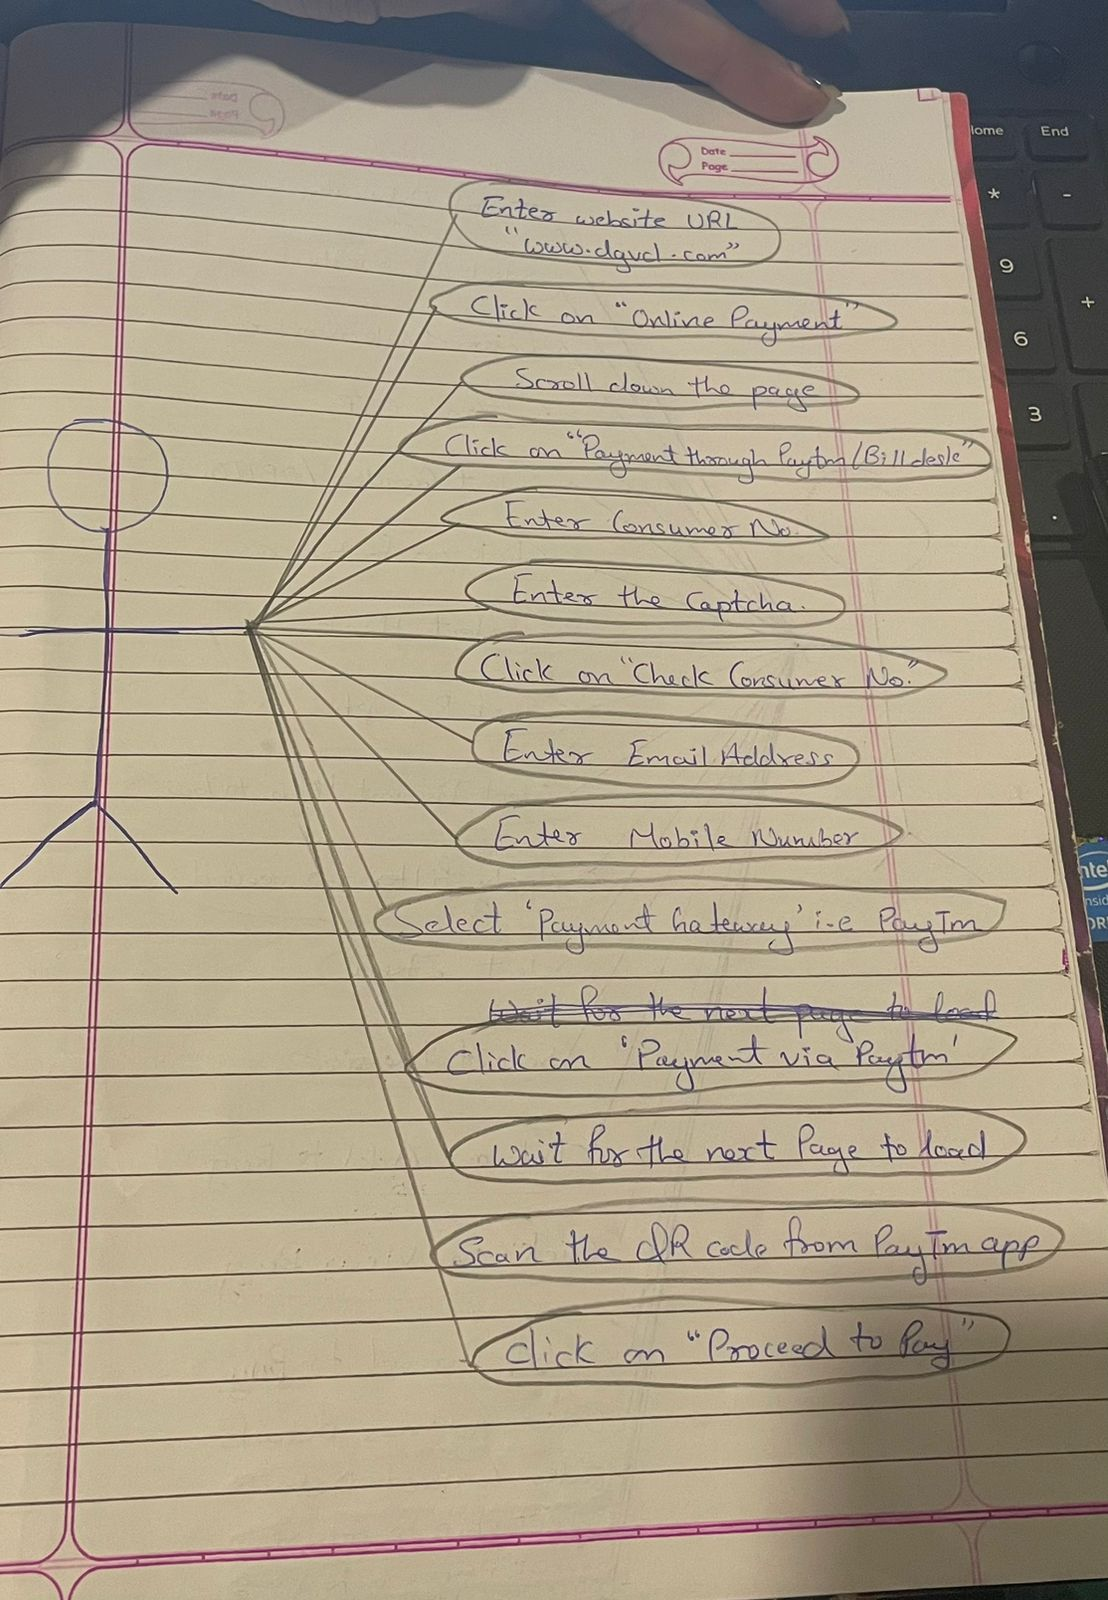 Date
Page
Enter website URL
"www.dgvcl.com"
Click on "Online Payment"
Scroll down the page
Click on "Payment through Paytm/Billdesk"
Enter Consumer No.
Enter the Captcha.
Click on "Check Consumer No."
Enter Email Address
Enter Mobile Number
Select 'Payment Gateway' i.e PayTm
Wait for the next page to load
Click on 'Payment via Paytm'
Wait for the next Page to load
Scan the QR code from PayTm app
Click on "Proceed to Pay"
Home End
* -
9
+
6
3
.